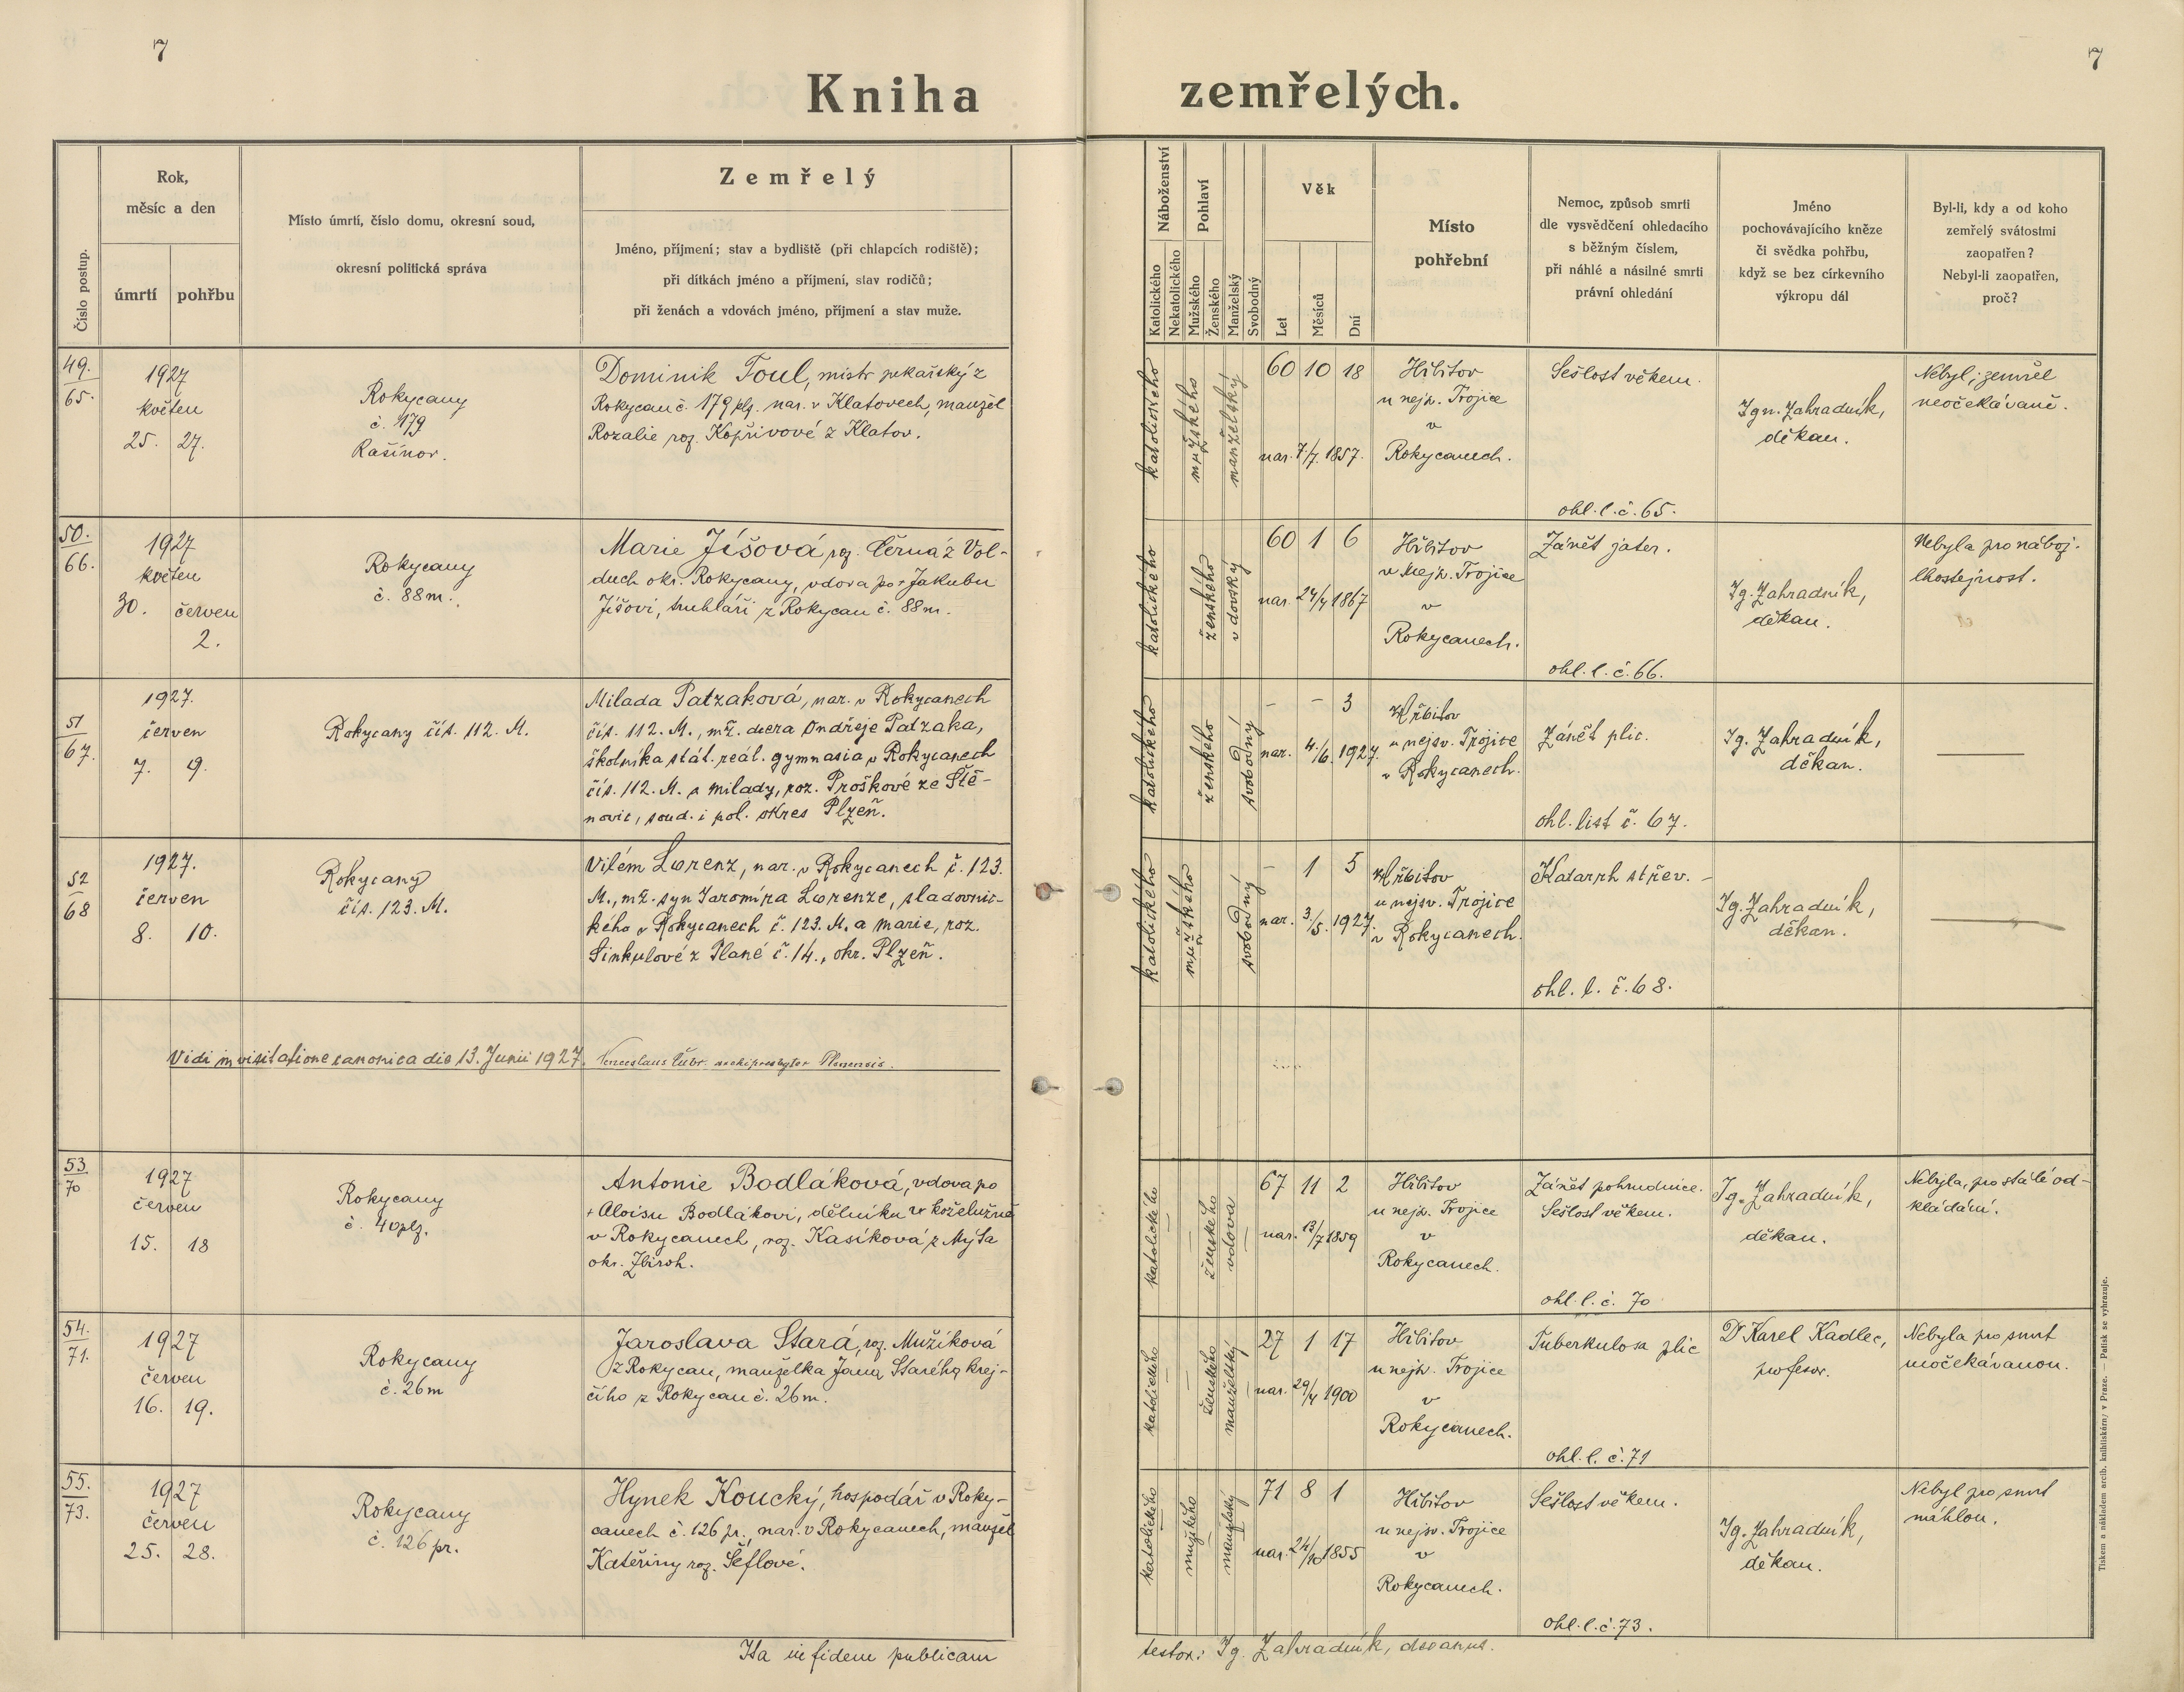 7
7
Kniha zemřelých.
Číslo postup.
Rok,
měsíc a den
úmrtí
pohřbu
Místo úmrtí, číslo domu, okresní soud,
okresní politická správa
Zemřelý
Jméno, příjmení; stav a bydliště (při chlapcích rodiště);
při dítkách jméno a příjmení, stav rodičů;
při ženách a vdovách jméno, příjmení a stav muže.
Náboženství
Katolického
Nekatolického
Pohlaví
Mužského
Ženského
Manželský
Svobodný
Věk
Let
Měsíců
Dní
Místo
pohřební
Nemoc, způsob smrti
dle vysvědčení ohledacího
s běžným číslem,
při náhlé a násilné smrti
právní ohledání
Jméno
pochovávajícího kněze
či svědka pohřbu,
když se bez církevního
výkropu dál
Byl-li, kdy a od koho
zemřelý svátostmi
zaopatřen?
Nebyl-li zaopatřen,
proč?
49.
65.
1927
květen
25. 27.
Rokycany
č. 179
Rašínov.
Dominik Toul, mistr pekařský z
Rokycan č. 179 plz. nar. v Klatovech, manžel
Rozalie roz. Kopřivové z Klatov.
katolického
mužského
manželský
60 10 18
nar. 7/7. 1857.
Hřbitov
u nejsv. Trojice
v
Rokycanech.
Sešlost věkem.
ohl. l. č. 65.
Ign. Zahradník,
děkan.
Nebyl; zemřel
neočekávaně.
50.
66.
1927
květen
30. červen
2.
Rokycany
č. 88m.
Marie Jíšová roz. Černá z Vol-
duch okr. Rokycany, vdova po + Jakubu
Jíšovi, truhláři z Rokycan č. 88m.
katolického
ženského
vdovský
60 1 6
nar. 24/4 1867
Hřbitov
u Nejsv. Trojice
v
Rokycanech.
Zánět jater.
ohl. l. č. 66.
Ig. Zahradník,
děkan.
Nebyla pro nábož.
lhostejnost.
51
67.
1927.
červen
7. 9.
Rokycany čís. 112. M.
Milada Patzaková, nar. v Rokycanech
čís. 112. M., mž. dcera Ondřeje Patzaka,
školníka stát. reál. gymnasia v Rokycanech
čís. 112. M. a Milady, roz. Proškové ze Ště-
novic, soud. i pol. okres Plzeň.
katolického
ženského
svobodný
- - 3
nar. 4./6. 1927.
Hřbitov
u nejsv. Trojice
v Rokycanech.
Zánět plic.
ohl. list č. 67.
Ig. Zahradník,
děkan.
52
68
1927.
červen
8. 10.
Rokycany
čís. 123. M.
Vilém Lorenz, nar. v Rokycanech č. 123.
M., mž. syn Jaromíra Lorenze, sladovnic-
kého v Rokycanech č. 123. M. a Marie, roz.
Sinkulové z Plané č. 14., okr. Plzeň.
katolického
mužského
svobodný
- 1 5
nar. 3./5. 1927.
Hřbitov
u nejsv. Trojice
v Rokycanech.
Katarrh střev.
ohl. l. č. 68.
Ig. Zahradník,
děkan.
Vidi in visitatione canonica die 13. Junii 1927. Venceslaus archipresbyter Plsnensis.
53
70
1927
červen
15. 18
Rokycany
č. 40plz.
Antonie Bodláková, vdova po
+ Aloisu Bodlákovi, dělníku v koželužně
v Rokycanech, roz. Kasíková z Mýta
okr. Zbiroh.
katolického
ženského
vdova
67 11 2
nar. 13/7 1859
Hřbitov
u nejsv. Trojice
v
Rokycanech.
Zánět pohrudnice.
Sešlost věkem.
ohl. l. č. 70
Ig. Zahradník,
děkan.
Nebyla, pro stálé od-
kládání.
54.
71.
1927
červen
16. 19.
Rokycany
č. 26m
Jaroslava Stará, roz. Mužíková
z Rokycan, manželka Jana Starého, krej-
čího z Rokycan č. 26m.
katolického
ženského
manželský
27 1 17
nar. 29/4 1900
Hřbitov
u nejsv. Trojice
v
Rokycanech.
Tuberkulosa plic
ohl. l. č. 71
Dr Karel Kadlec,
profesor.
Nebyla pro smrt
neočekávanou.
55.
73.
1927
červen
25. 28.
Rokycany
č. 126 pr.
Hynek Koucký, hospodář v Roky-
canech č. 126 pr., nar. v Rokycanech, manžel
Kateřiny roz. Šéflové.
katolického
mužského
manželský
71 8 1
nar. 24/10 1855
Hřbitov
u nejsv. Trojice
v
Rokycanech.
Sešlost věkem.
ohl. l. č. 73.
Ig. Zahradník,
děkan.
Nebyl pro smrt
náhlou.
Ita in fidem publicam
testor: Ig. Zahradník, decanus.
Tiskem a nákladem arcib. knihtiskárny v Praze. — Patisk se vyhrazuje.